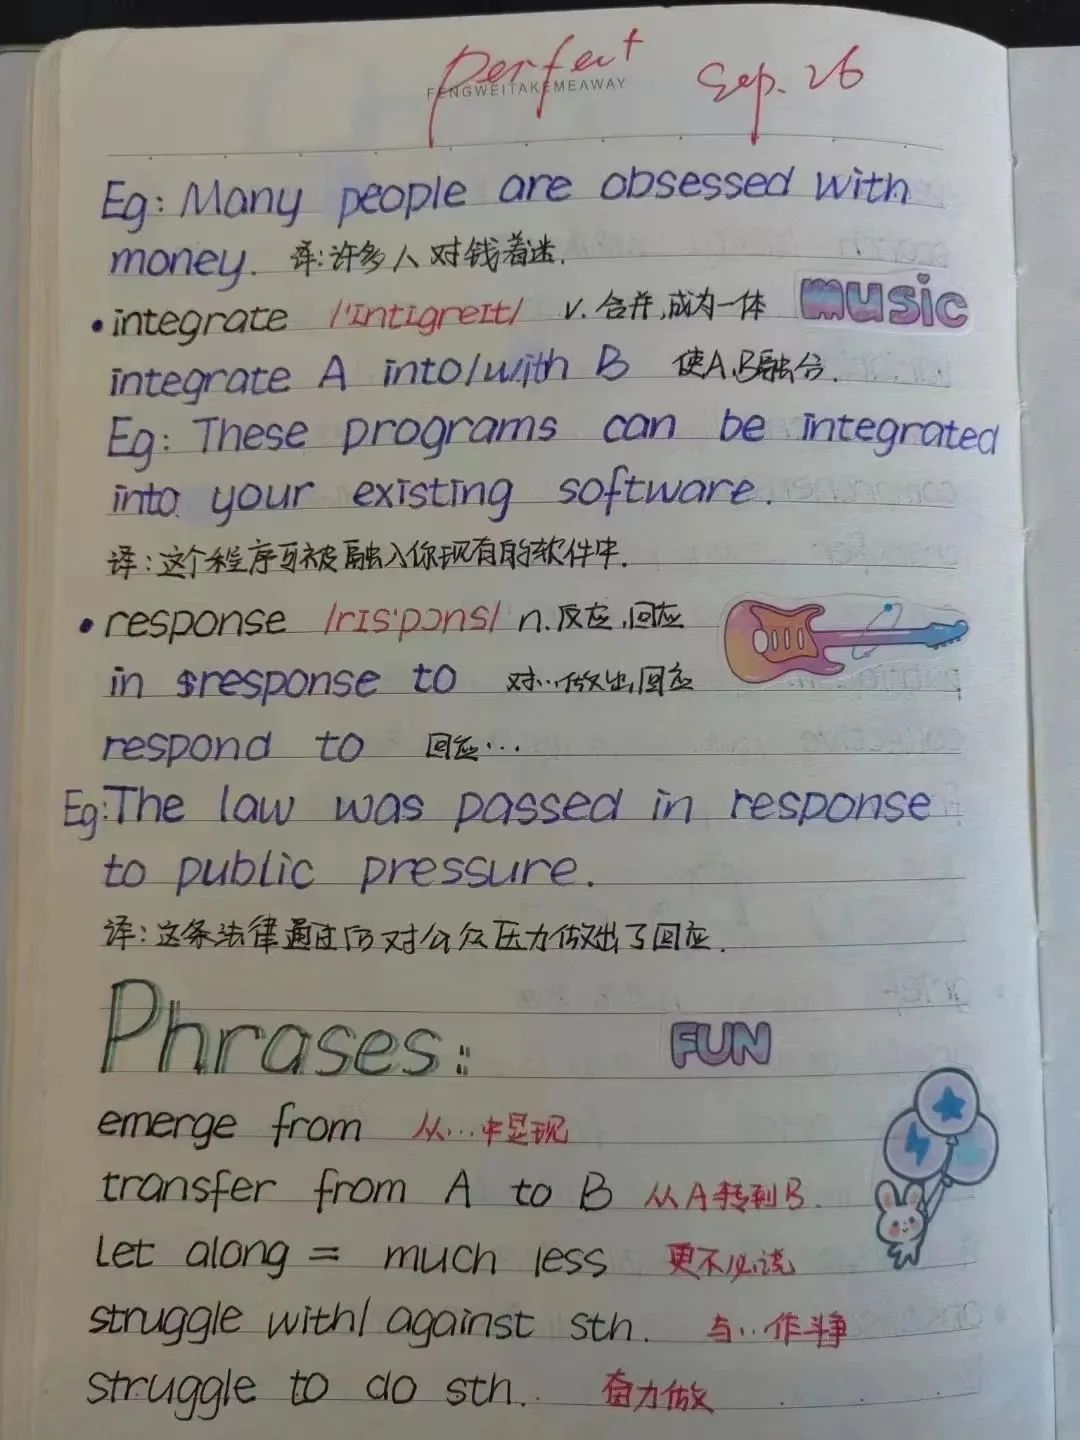 perfect
FENGWEITAKEMEAWAY
Sep. 26
Eg: Many people are obsessed with
money. 译:许多人对钱着迷.
•integrate /'ɪntɪgreɪt/ v. 合并,成为一体 music
integrate A into/with B 使A,B融合.
Eg: These programs can be integrated
into your existing software.
译:这个程序可被融入你现有的软件中.
•response /rɪs'pɔns/ n.反应,回应
in response to 对…做出回应
respond to 回应…
Eg:The law was passed in response
to public pressure.
译:这条法律通过 对公众压力做出了回应.
Phrases: FUN
emerge from 从…中显现
transfer from A to B 从A转到B.
Let along = much less 更不必说
struggle with/against sth. 与…作斗争
struggle to do sth. 奋力做